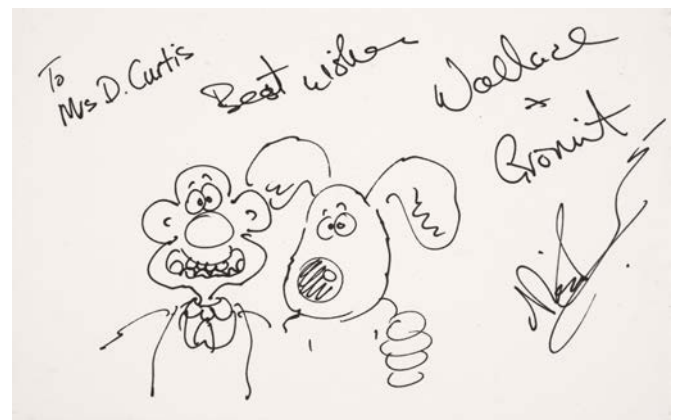 To
Mrs D. Curtis
Best wishes
Wallace
x
Gromit
Nick